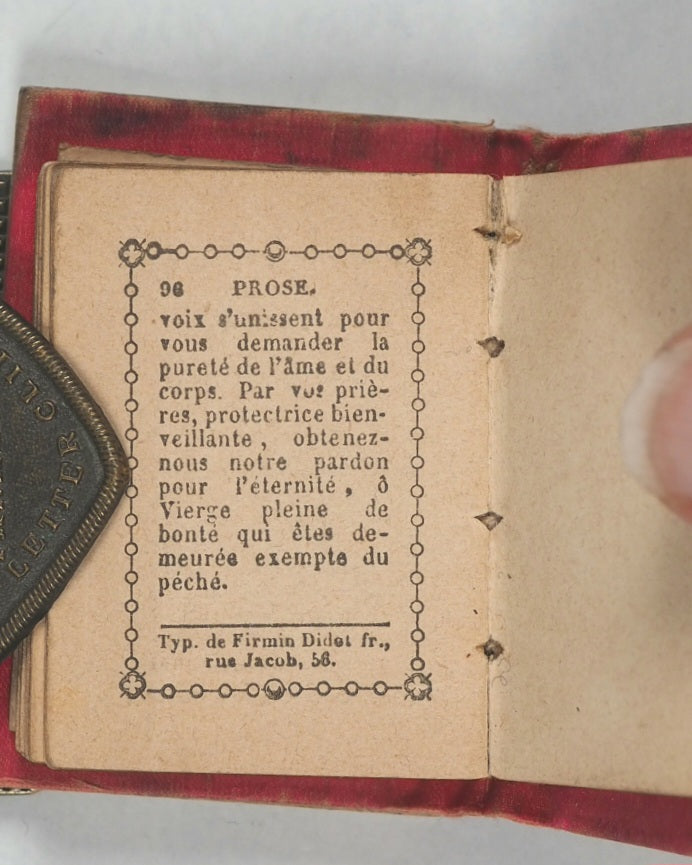 LETTER CLIP
96 PROSE.
voix s'unissent pour
vous demander la
pureté de l'âme et du
corps. Par vos priè-
res, protectrice bien-
veillante, obtenez-
nous notre pardon
pour l'éternité, ô
Vierge pleine de
bonté qui êtes de-
meurée exempte du
péché.
Typ. de Firmin Didot fr.,
rue Jacob, 56.